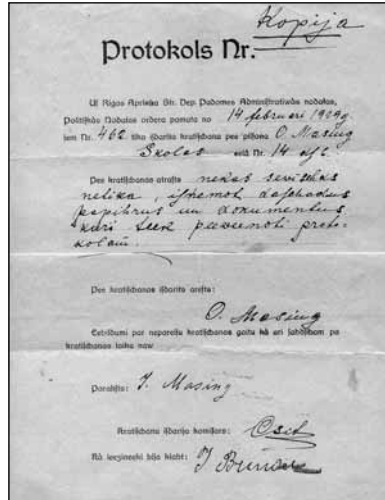 Kopija
Protokols Nr.
Us Rigas Aprinka Str. Dep. Padomes Administratiwās nodaļas,
Politiskās Nodaļas ordera pamata no 14 februari 1919 g
iem Nr. 462 tika isdarita kratischana pee pilsoņa O. Masing
Skolas eelā Nr. 14 dz. 2
Pee kratischanas atrasts nekas sewischks
netika, isņemot daschadus
papihrus un dokumentus
kuri teek peeweenoti proto-
kolam.
Pee kratischanas isdarits arests:
O. Masing
Eebildumi par nepareisu kratischanas gaitu kā arī sahdsibam pa
kratischanas laiku naw
Paraksts: J. Masing
Kratischanu isdarija komisars:
Kā leezineeki bija klaht: J